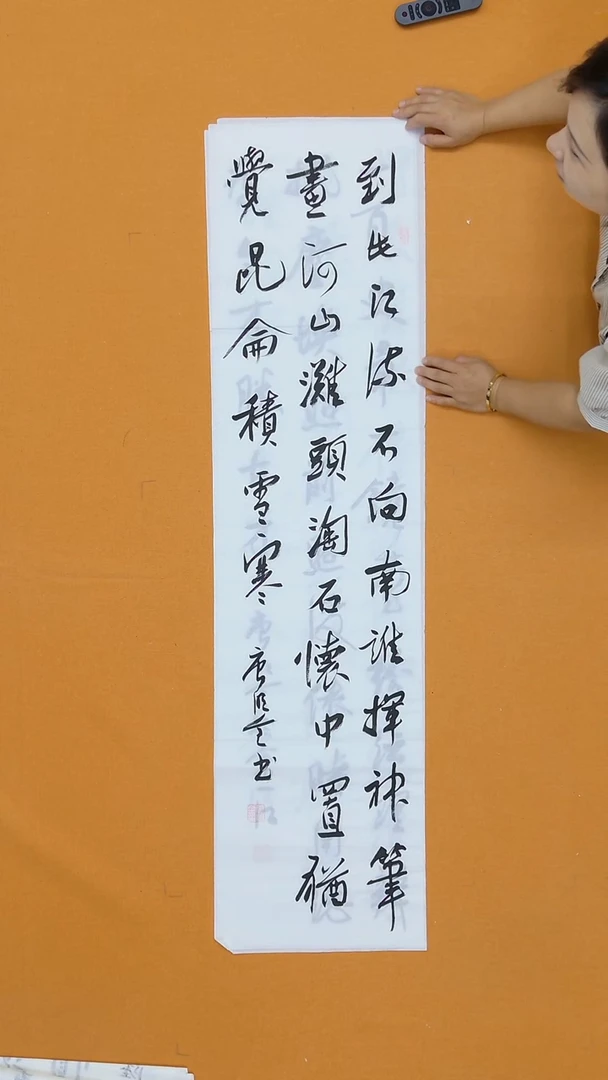 到此江流不向南誰揮神筆
畫河山灘頭淘石懷中置猶
覺昆侖積雪寒 唐書